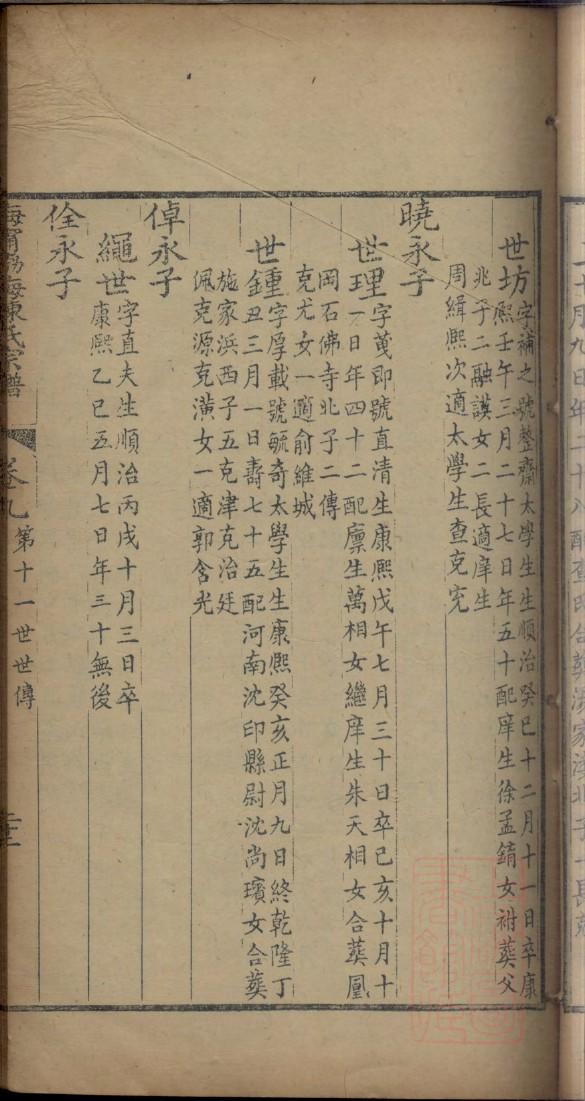 世坊字補之號整齋太學生生順治癸巳十二月十一日卒康
熙壬午三月二十七日年五十配庠生徐孟錥女祔葬父
兆子二融謨女二長適庠生
周緝熙次適太學生查克寬
曉永子
世理字蓂即號直清生康熙戊午七月三十日卒己亥十月十
一日年四十二配廩生萬相女繼庠生朱天相女合葬鳳
岡石佛寺北子二傳
克尤女一適俞維城
世鍾字厚載號毓奇太學生生康熙癸亥正月九日終乾隆丁
丑三月一日壽七十五配河南沈印縣尉沈尚璸女合葬
施家浜西子五克津克治廷
佩克源克潢女一適郭含光
倬永子
繩世字直夫生順治丙戌十月三日卒
康熙乙巳五月七日年三十無後
佺永子
海甯渤海陳氏宗譜
卷九
第十一世世傳